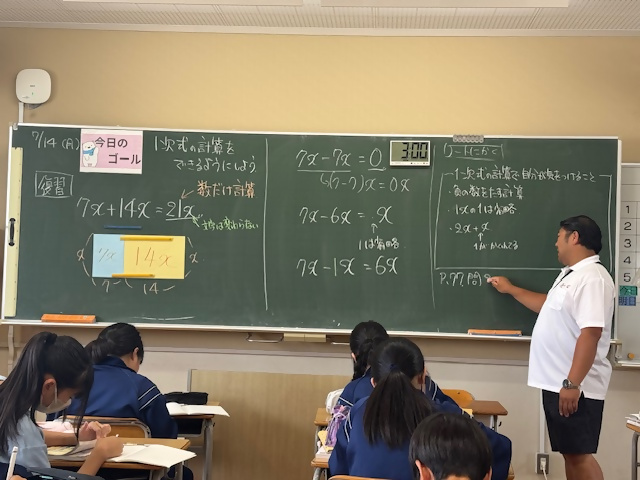 7/14(月)
今日の
ゴール
1次式の計算を
できるようにしよう
復習
数だけ計算
7x+14x=21x
文字は変わらない
x
7x
14x
x
7
14
7x-7x=0
(7-7)x=0x
7x-6x=x
1は省略
7x-1x=6x
3:00
1次式の計算で自分が気をつけること
・負の数をたす計算
・1xの1は省略
・2x+x
P.77 問8
1
2
3
4
5